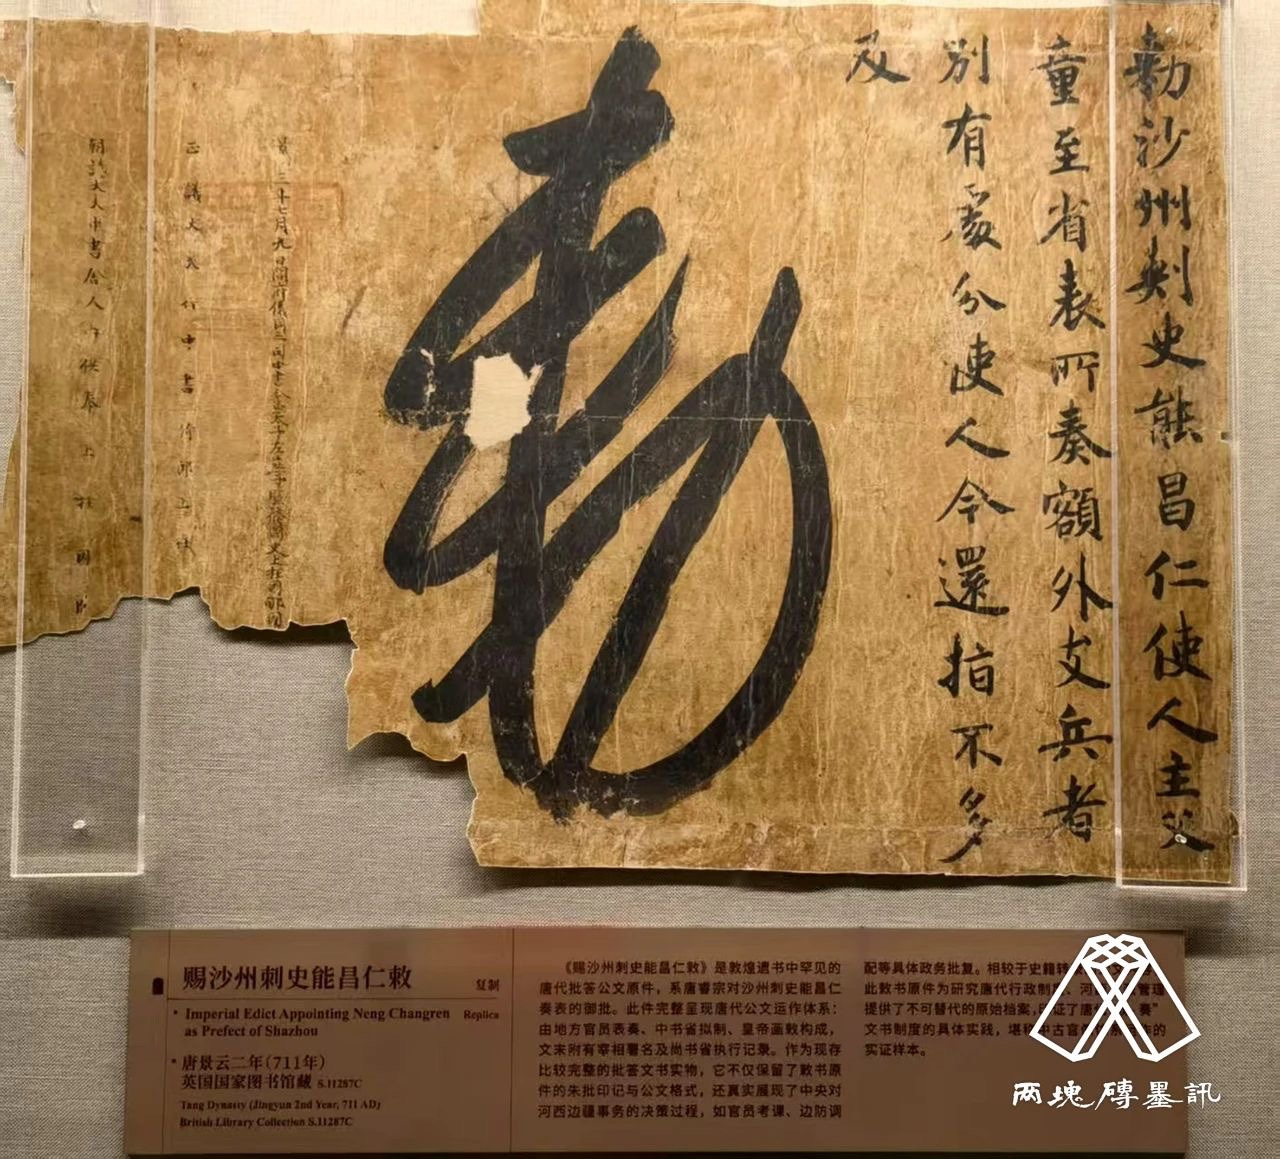 勅沙州刺史能昌仁使人主父
童至省表所奏額外支兵者
別有處分使人今還指不多
及
勅
正議大夫行中書侍郎上柱
朝議大夫中書舍人
供奉上柱國臣
赐沙州刺史能昌仁敕
复制
Imperial Edict Appointing Neng Changren
Replica
as Prefect of Shazhou
唐景云二年（711年）
英国国家图书馆藏 S.11287C
Tang Dynasty (Jingyun 2nd Year, 711 AD)
British Library Collection S.11287C
《赐沙州刺史能昌仁敕》是敦煌遗书中罕见的
唐代批答公文原件，系唐睿宗对沙州刺史能昌仁
奏表的御批。此件完整呈现唐代公文运作体系：
由地方官员表奏、中书省拟制、皇帝画敕构成，
文末附有宰相署名及尚书省执行记录。作为现存
比较完整的批答文书实物，它不仅保留了敕书原
件的朱批印记与公文格式，还真实展现了中央对
河西边疆事务的决策过程，如官员考课、边防调
配等具体政务批复。相较于史籍转
此敕书原件为研究唐代行政制度、河
管理
提供了不可替代的原始档案，印证了唐
奏”
文书制度的具体实践，堪称中古官
作的
实证样本。
两塊磚墨訊